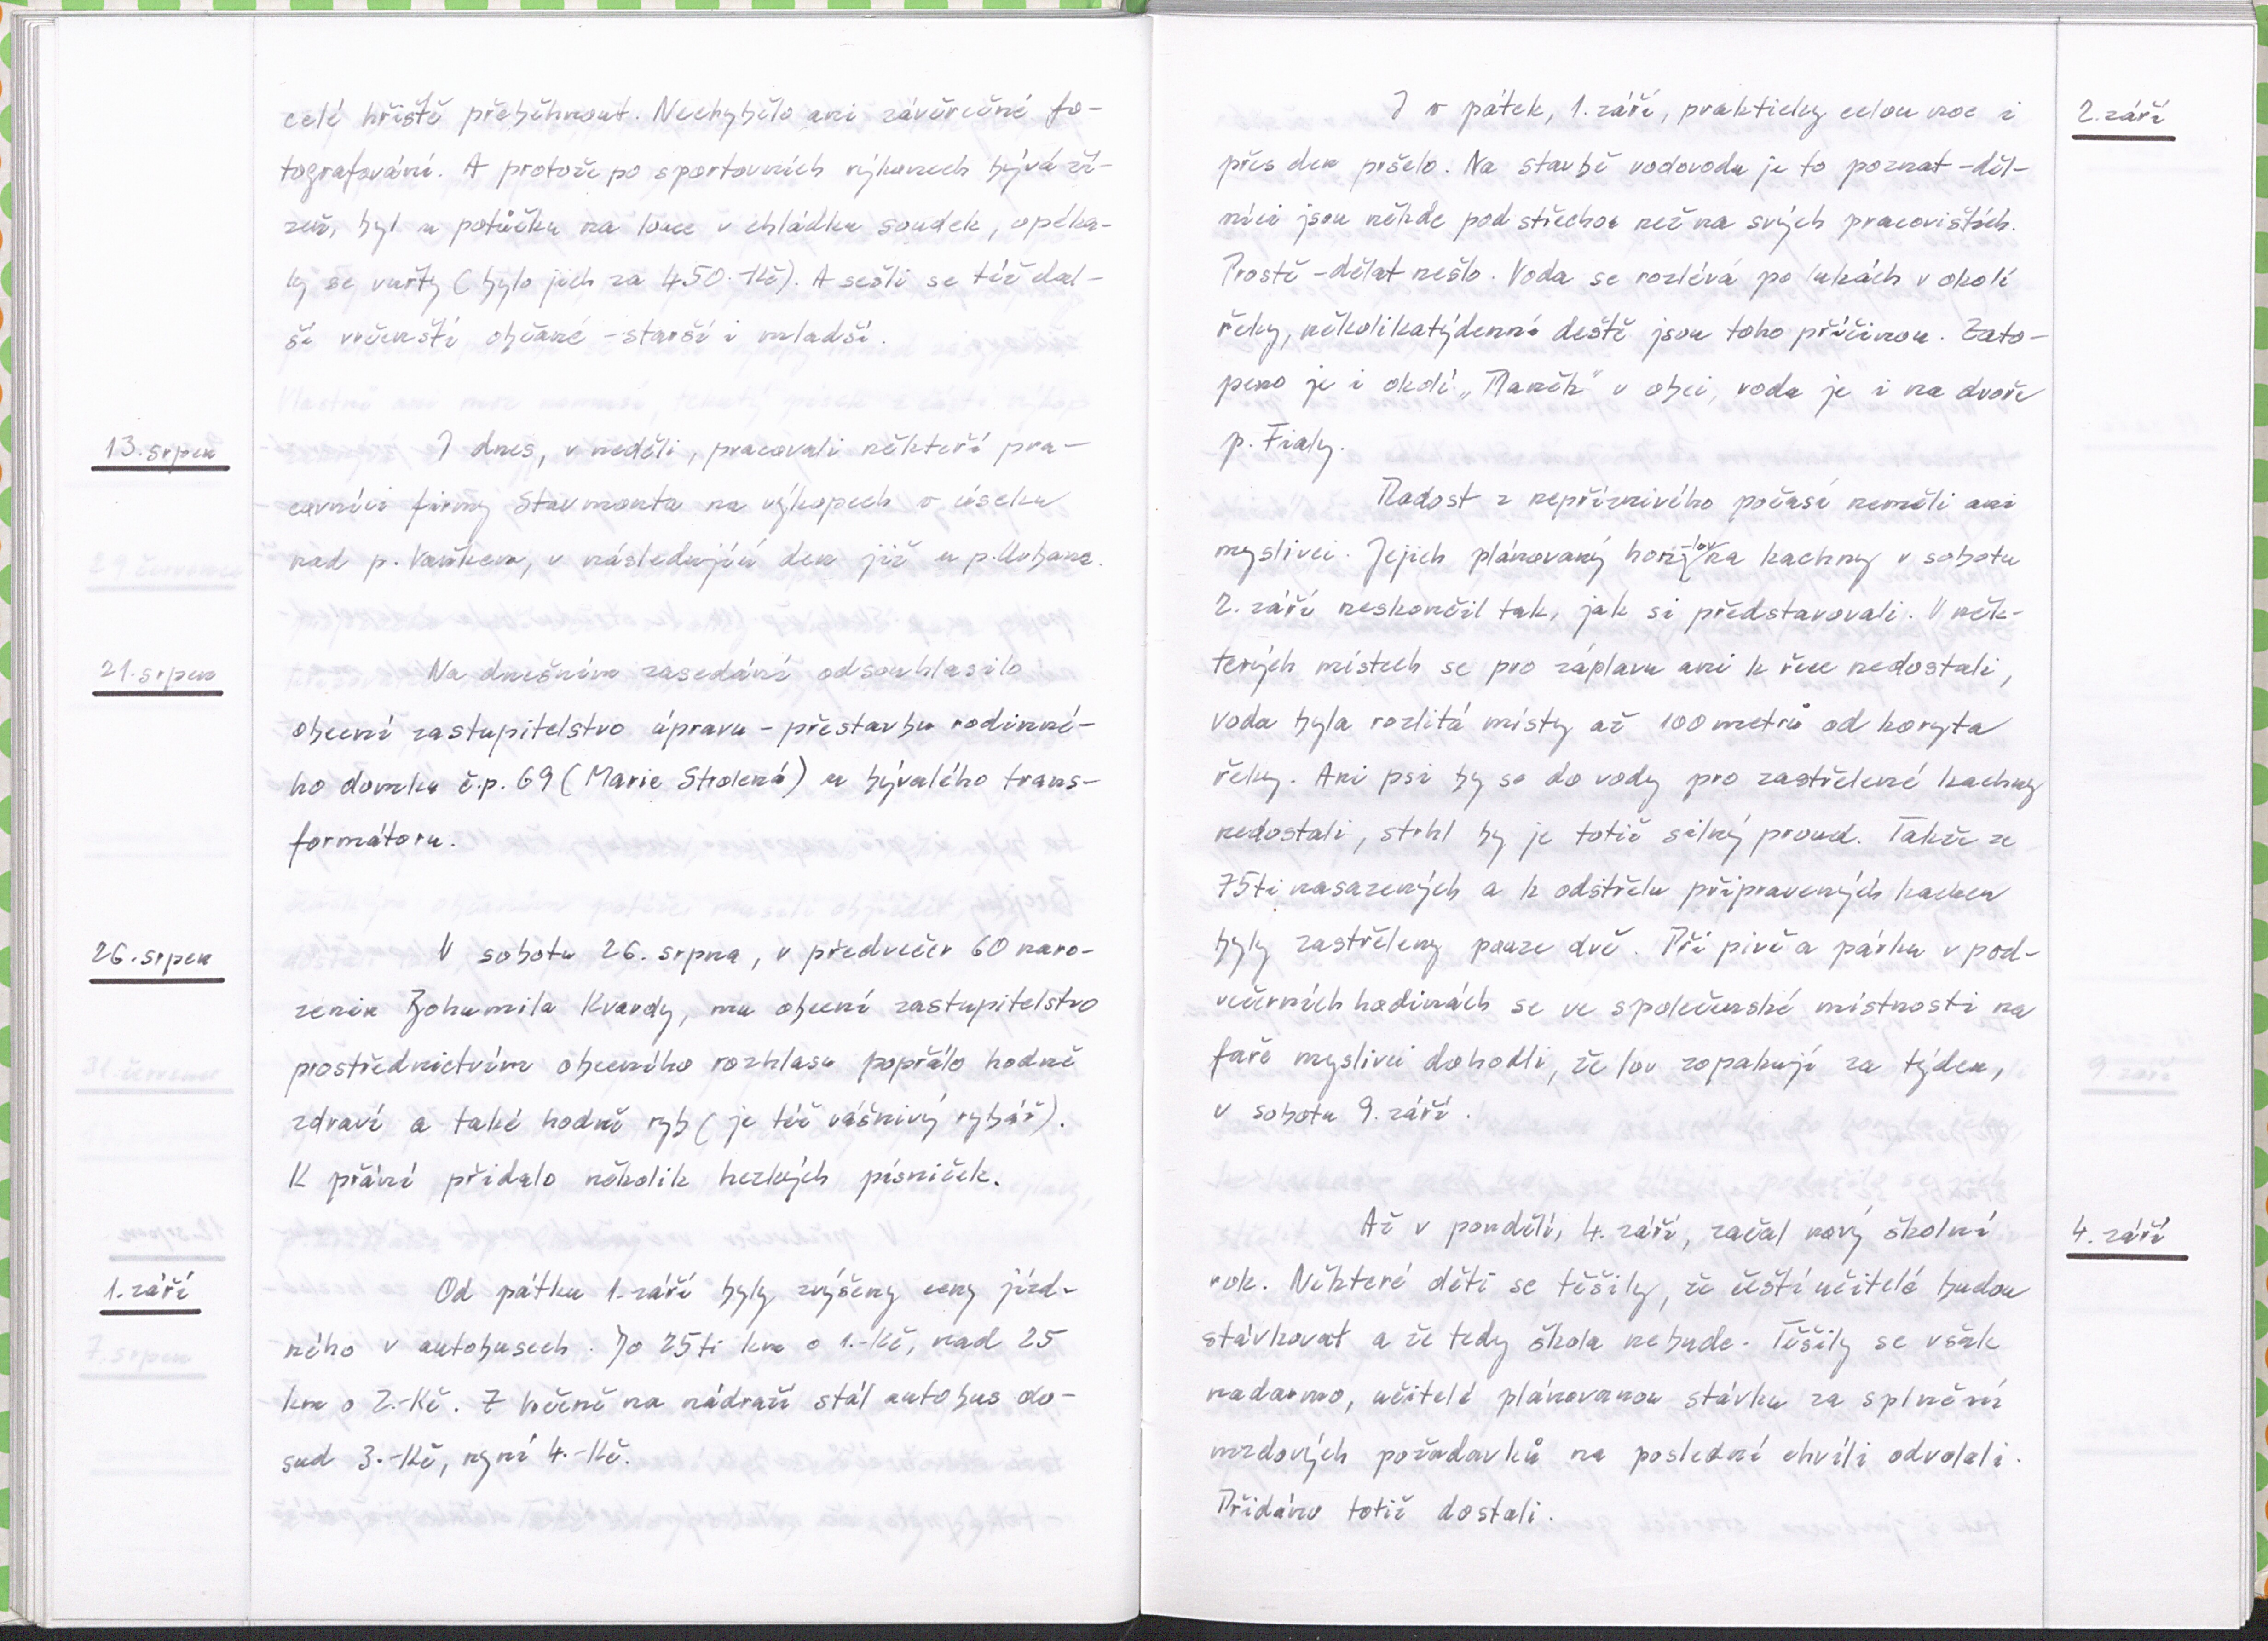 celé hřiště přeběhnout. Nechybělo ani závěrečné fo-
tografování. A protože po sportovních výkonech bývá ží-
zeň, byl u potůčku na louce v chládku soudek, opéka-
ly se vuřty (bylo jich za 450.-Kč). A sešli se též dal-
ší občané - starší i mladší.
13. srpen
I dnes, v neděli, pracovali někteří pra-
covníci firmy Stavmonta na výkopech v úseku
nad p. Vaňkem, v následující den již u p. Urbana.
21. srpen
Na dnešním zasedání odsouhlasilo
obecní zastupitelstvo úpravu - přestavbu rodinné-
ho domku č.p. 69 (Marie Strolená) u bývalého trans-
formátoru.
26. srpen
V sobotu 26. srpna, v předvečer 60 naro-
zenin Bohumila Kvardy, mu obecní zastupitelstvo
prostřednictvím obecního rozhlasu popřálo hodně
zdraví a také hodně ryb (je též vášnivý rybář).
K přání přidalo několik hezkých písniček.
1. září
Od pátku 1. září byly zvýšeny ceny jízd-
ného v autobusech. Do 25ti km o 1.-Kč, nad 25
km o 2.-Kč. Z na nádraží stál autobus do-
sud 3.-Kč, nyní 4.-Kč.
2. září
I v pátek, 1. září, prakticky celou noc i
přes den pršelo. Na stavbě vodovodu je to poznat - děl-
níci jsou někde pod střechou než na svých pracovištích.
Prostě - dělat nešlo. Voda se rozlévá po lukách v okolí
řeky, několikatýdenní deště jsou toho příčinou. Zato-
peno je i okolí „Maněk" v obci, voda je i na dvoře
p. Fialy.
Radost z nepříznivého počasí neměli ani
myslivci. Jejich plánovaný hon -lov na kachny v sobotu
2. září neskončil tak, jak si představovali. V něk-
terých místech se pro záplavu ani k řece nedostali,
voda byla rozlitá místy až 100 metrů od koryta
řeky. Ani psi by se do vody pro zastřelené kachny
nedostali, strhl by je totiž silný proud. Takže ze
75ti nasazených a k odstřelu připravených kachen
byly zastřeleny pouze dvě. Při pivě a párku v pod-
večerních hodinách se ve společenské místnosti na
faře myslivci dohodli, že lov zopakují za týden,
v sobotu 9. září.
4. září
Až v pondělí, 4. září, začal nový školní
rok. Některé děti se těšily, že čeští učitelé budou
stávkovat a že tedy škola nebude. Těšily se však
nadarmo, učitelé plánovanou stávku za splnění
mzdových požadavků na poslední chvíli odvolali.
Přidáno totiž dostali.